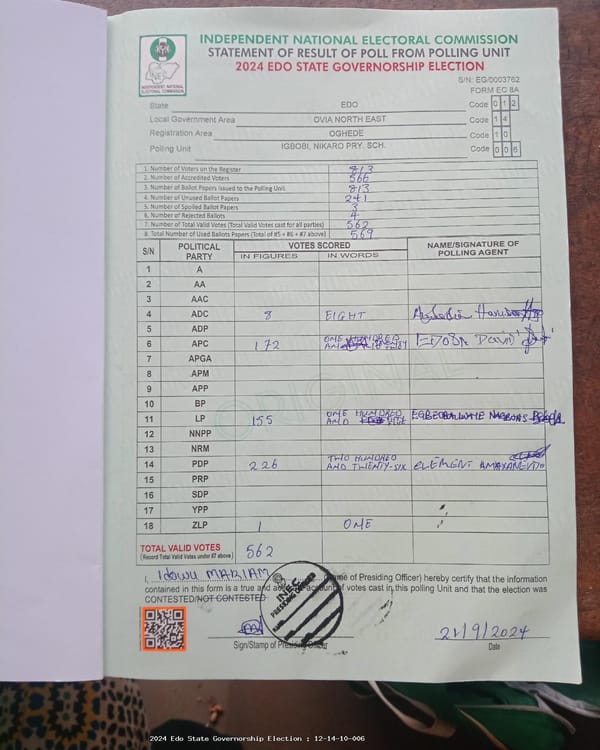 INDEPENDENT NATIONAL ELECTORAL COMMISSION
STATEMENT OF RESULT OF POLL FROM POLLING UNIT
2024 EDO STATE GOVERNORSHIP ELECTION
INEC
INDEPENDENT NATIONAL ELECTORAL COMMISSION
S/N: EG/0003762
FORM EC 8A
State EDO Code 0 1 2
Local Government Area OVIA NORTH EAST Code 1 4
Registration Area OGHEDE Code 1 0
Polling Unit IGBOBI, NIKARO PRY. SCH. Code 0 0 6
1. Number of Voters on the Register 813
2. Number of Accredited Voters 566
3. Number of Ballot Papers Issued to the Polling Unit 813
4. Number of Unused Ballot Papers 241
5. Number of Spoiled Ballot Papers 3
6. Number of Rejected Ballots 4
7. Number of Total Valid Votes (Total Valid Votes cast for all parties) 562
8. Total Number of Used Ballots Papers (Total of #5 + #6 + #7 above) 569
S/N POLITICAL PARTY VOTES SCORED NAME/SIGNATURE OF POLLING AGENT
IN FIGURES IN WORDS
1 A
2 AA
3 AAC
4 ADC 8 EIGHT
5 ADP
6 APC 172 ONE HUNDRED AND
7 APGA
8 APM
9 APP
10 BP
11 LP 155 ONE HUNDRED AND
12 NNPP
13 NRM
14 PDP 226 TWO HUNDRED AND TWENTY-SIX
15 PRP
16 SDP
17 YPP
18 ZLP 1 ONE
TOTAL VALID VOTES 562
(Record Total Valid Votes under #7 above)
I, Idowu MARIAM (Name of Presiding Officer) hereby certify that the information
contained in this form is a true and of votes cast in this polling Unit and that the election was
CONTESTED/NOT CONTESTED
INEC
PRESIDING OFFICER
21/9/2024
Sign/Stamp of Presiding Officer Date
ORIGINAL
2024 Edo State Governorship Election : 12-14-10-006